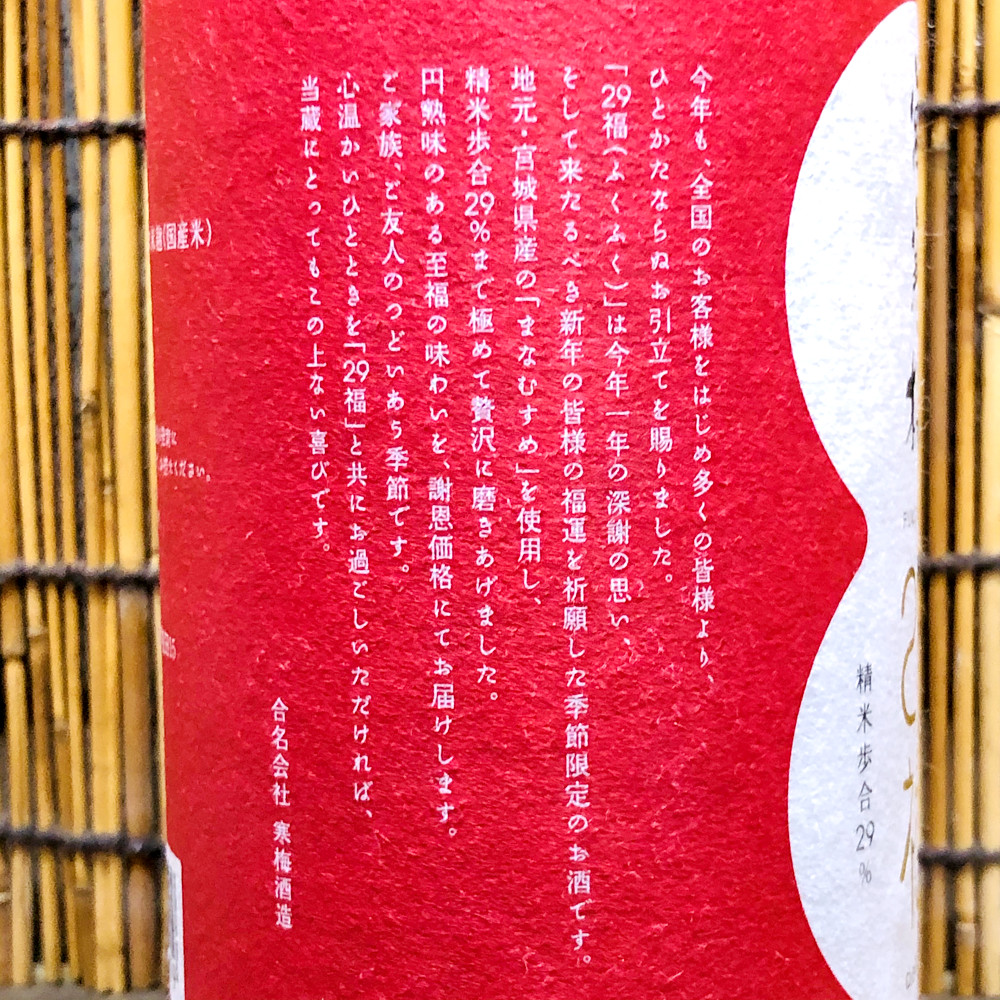 今年も、全国のお客様をはじめ多くの皆様より、
ひとかたならぬお引立てを賜りました。
「29福(ふくふく)」は今年一年の深謝の思い、
そして来たるべき新年の皆様の福運を祈願した季節限定のお酒です。
地元・宮城県産の「まなむすめ」を使用し、
精米歩合29%まで極めて贅沢に磨きあげました。
円熟味のある至福の味わいを、謝恩価格にてお届けします。
ご家族、ご友人のつどいあう季節です。
心温かいひとときを「29福」と共にお過ごしいただければ、
当蔵にとってもこの上ない喜びです。
合名会社 寒梅酒造
精米歩合29%
(国産米)
ください。